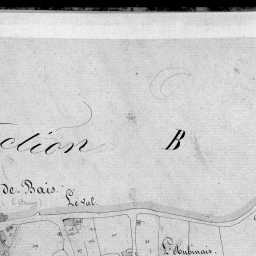 ction B
de Bais.
Le Val.
L'Aubinais.